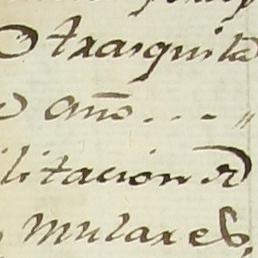 trasquila
año . . . "
litacion de
Mulares,